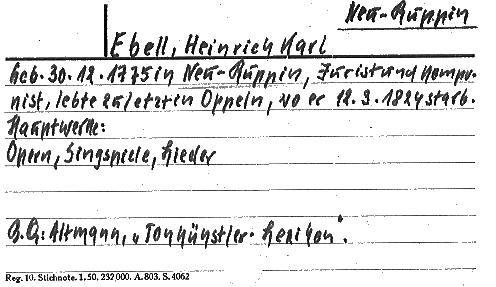 Neu-Ruppin
Ebell, Heinrich Karl
Geb. 30.12.1775 in Neu-Ruppin, Jurist und Kompo-
nist, lebte zuletzt in Oppeln, wo er 12.3.1824 starb.
Hauptwerke:
Opern, Singspiele, Lieder
B.Q: Altmann, „Tonkünstler-Lexikon".
Reg. 10. Stichnote. 1,50. 232000. A. 803. S. 4062